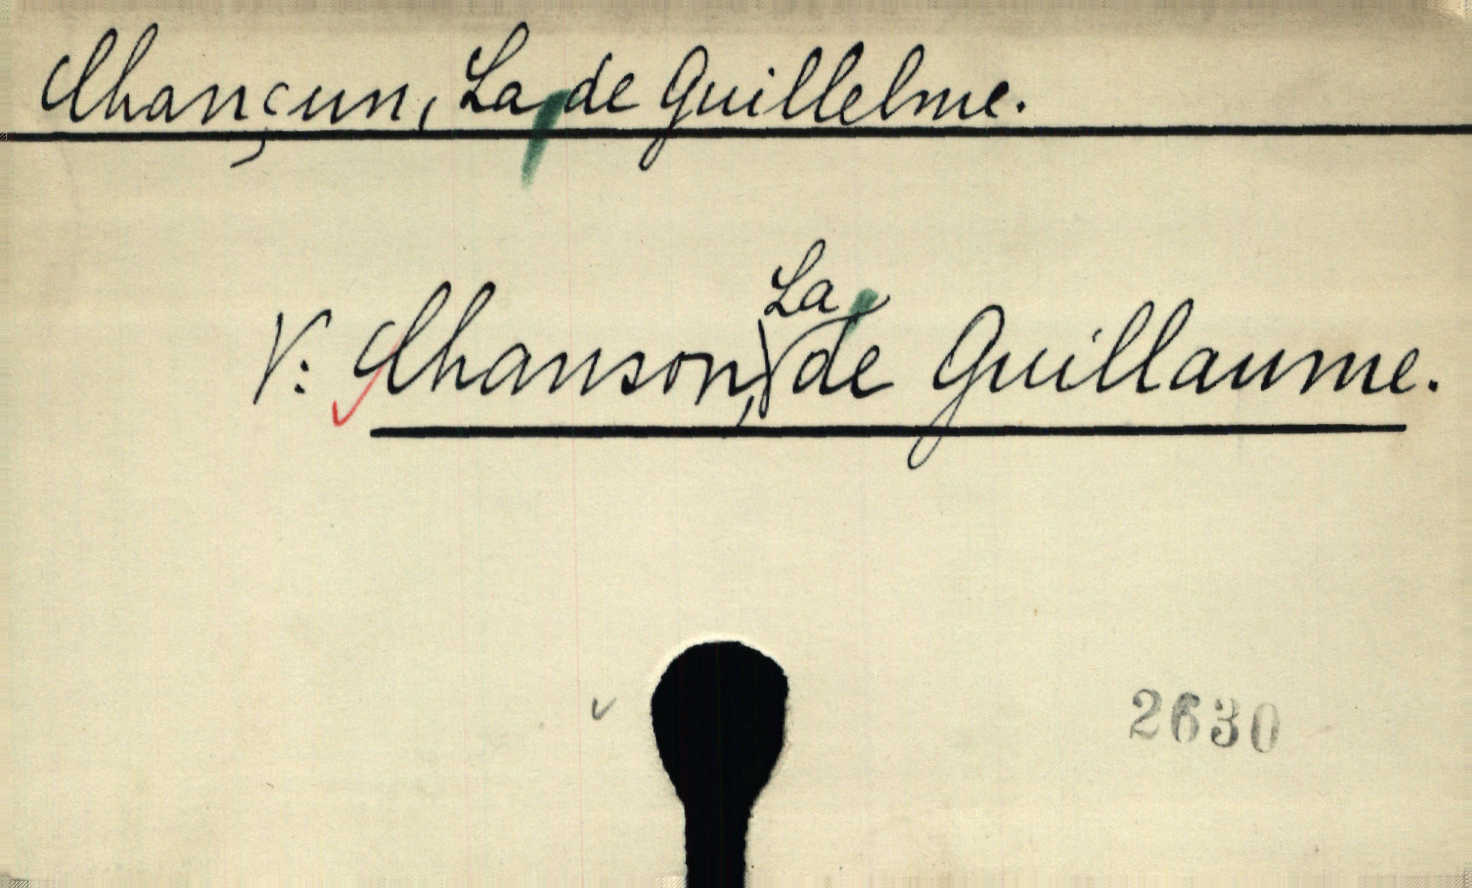 Chançun, La, de Guillelme.
V: Chanson, La, de Guillaume.
2630